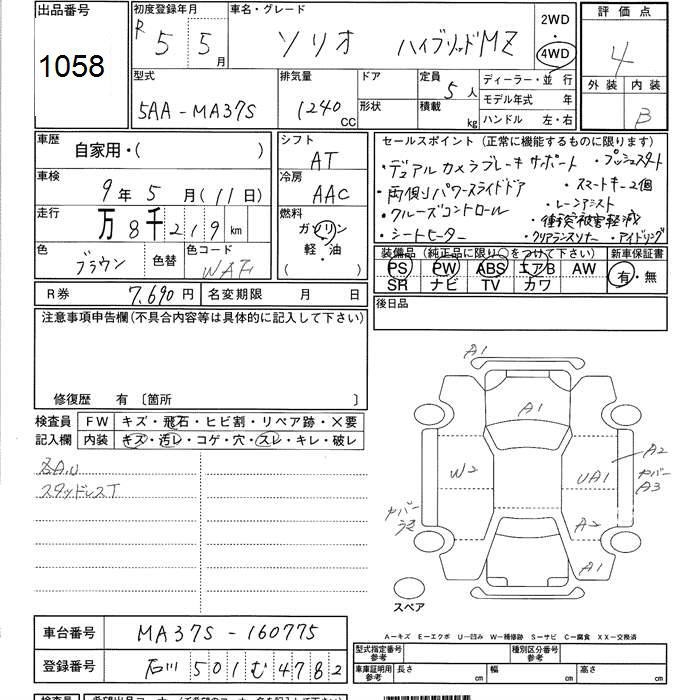 出品番号 初度登録年月 車名・グレード 2WD 評価点
1058 R 5 5月 ソリオ ハイブリッドMZ 4WD 4
型式 排気量 ドア 定員 5人 ディーラー・並行 外装 内装
5AA-MA37S 1240CC 形状 積載 kg モデル年式 年 B
ハンドル 左・右
車歴 自家用・( ) シフト AT セールスポイント(正常に機能するものに限ります)
車検 9年5月(11日) 冷房 AAC ・デュアルカメラブレーキサポート ・プッシュスタート
・両側パワースライドドア ・スマートキー2個
走行 万8千219km 燃料 ガソリン 軽・油 ( ) ・クルーズコントロール ・レーンアシスト
・シートヒーター ・衝突被害軽減
・クリアランスソナー ・アイドリング
色 ブラウン 色替 色コード 装備品(純正品に限り○をつけて下さい) 新車保証書
PS PW ABS エアB AW 有・無
SR ナビ TV カワ
R券 7,690円 名変期限 月 日 後日品
注意事項申告欄(不具合内容等は具体的に記入して下さい)
修復歴 有〔箇所 〕
検査員 FW キズ・飛石・ヒビ割・リペア跡・×要
記入欄 内装 キズ・汚レ・コゲ・穴・スレ・キレ・破レ
各A.U
スタッドレスT
A1
A1
W2 UA1 A2
カバー A3
カバー
A2
A1
スペア
車台番号 MA37S-160775
登録番号 石川 501 む 4782
A-キズ E-エクボ U-凹み W-補修跡 S-サビ C-腐食 XX-交換済
型式指定番号 参考 種別区分番号 参考
車庫証明用 参考 長さ cm 幅 cm 高さ cm